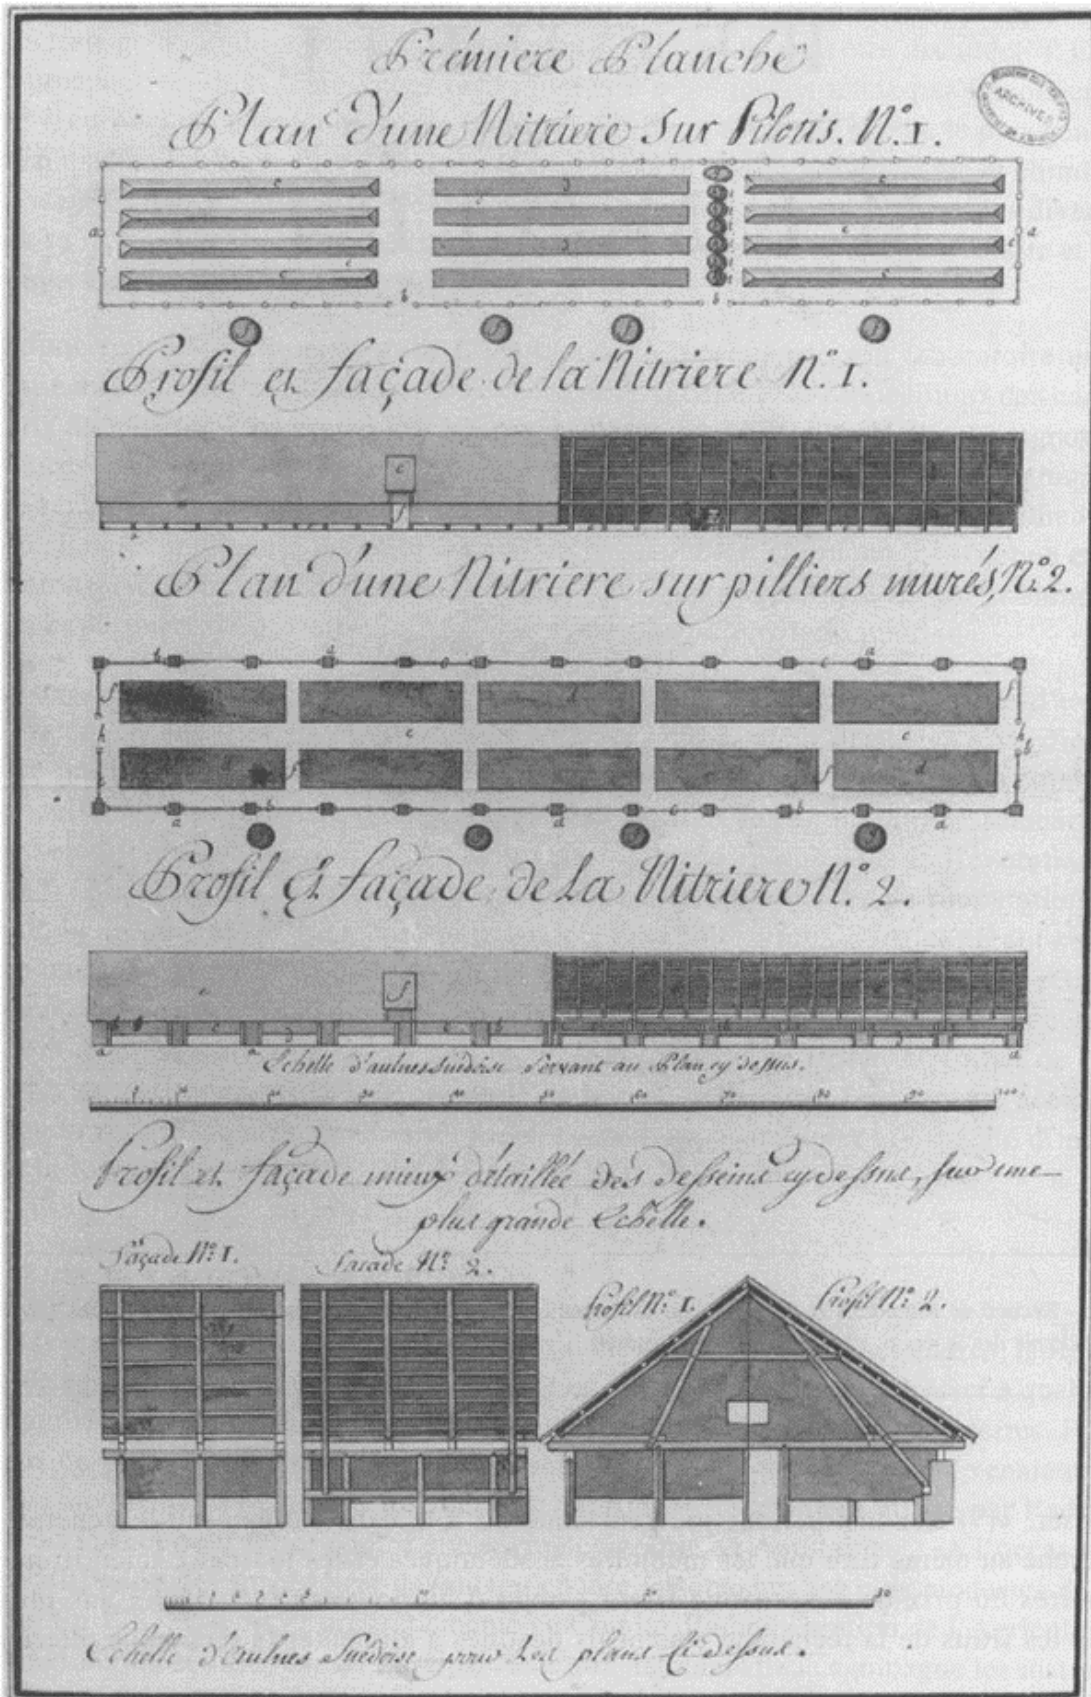 Prémiere Planche
ARCHIVES
Plan d'une Nitriere sur Pilotis. N.º 1.
Profil et façade de la Nitriere N.º 1.
Plan d'une Nitriere sur pilliers murés, N.º 2.
Profil & façade de La Nitriere N.º 2.
Echelle d'aulnes suédoise servant au Plan cy dessus.
10 20 30 40 50 60 70 80 90 100
Profil et façade mieux détaillée des desseins cydessus, sur une
plus grande Echelle.
façade N.º 1. facade N.º 2.
Profil N.º 1. Profil N.º 2.
10 20 30
Echelle d'aulnes Suédoise pour Les plans Ci dessus.